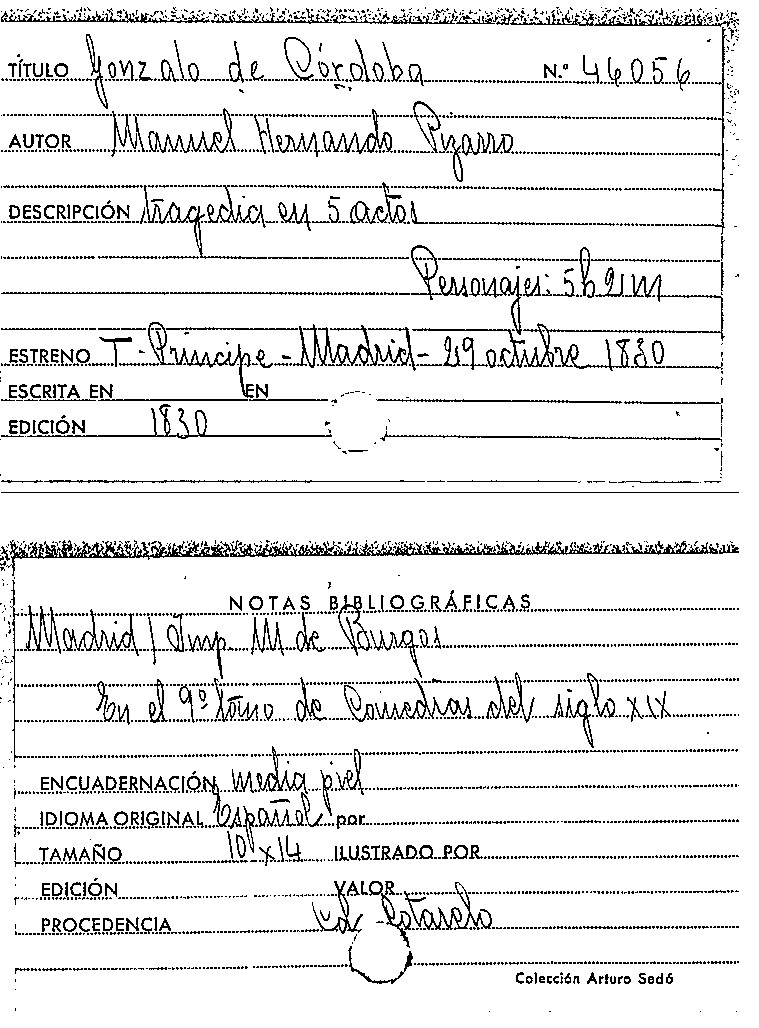 TÍTULO Gonzalo de Córdoba N.º 46056
AUTOR Manuel Hernando Pizarro
DESCRIPCIÓN tragedia en 5 actos
Personajes: 5h 2m
ESTRENO T - Principe - Madrid - 29 octubre 1830
ESCRITA EN EN
EDICIÓN 1830
NOTAS BIBLIOGRÁFICAS
Madrid / Imp. M de Burgos
En el 9º tomo de Comedias del siglo XIX
ENCUADERNACIÓN media piel
IDIOMA ORIGINAL Español por
TAMAÑO 10 x 14 ILUSTRADO POR
EDICIÓN VALOR
PROCEDENCIA Cotarelo
Colección Arturo Sedó